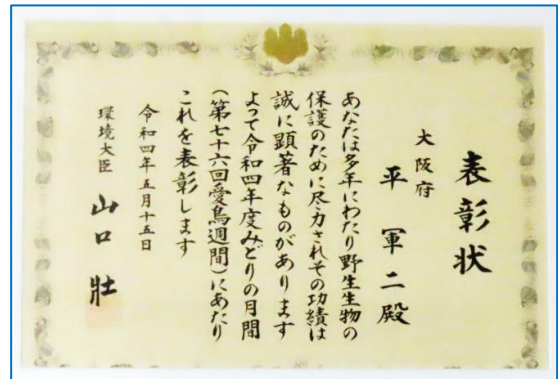 表彰状
大阪府
平軍二殿
あなたは多年にわたり野生生物の
保護のために尽力されその功績は
誠に顕著なものがあります
よって令和四年度みどりの月間
(第七十六回愛鳥週間)にあたり
これを表彰します
令和四年五月十五日
環境大臣 山口壯